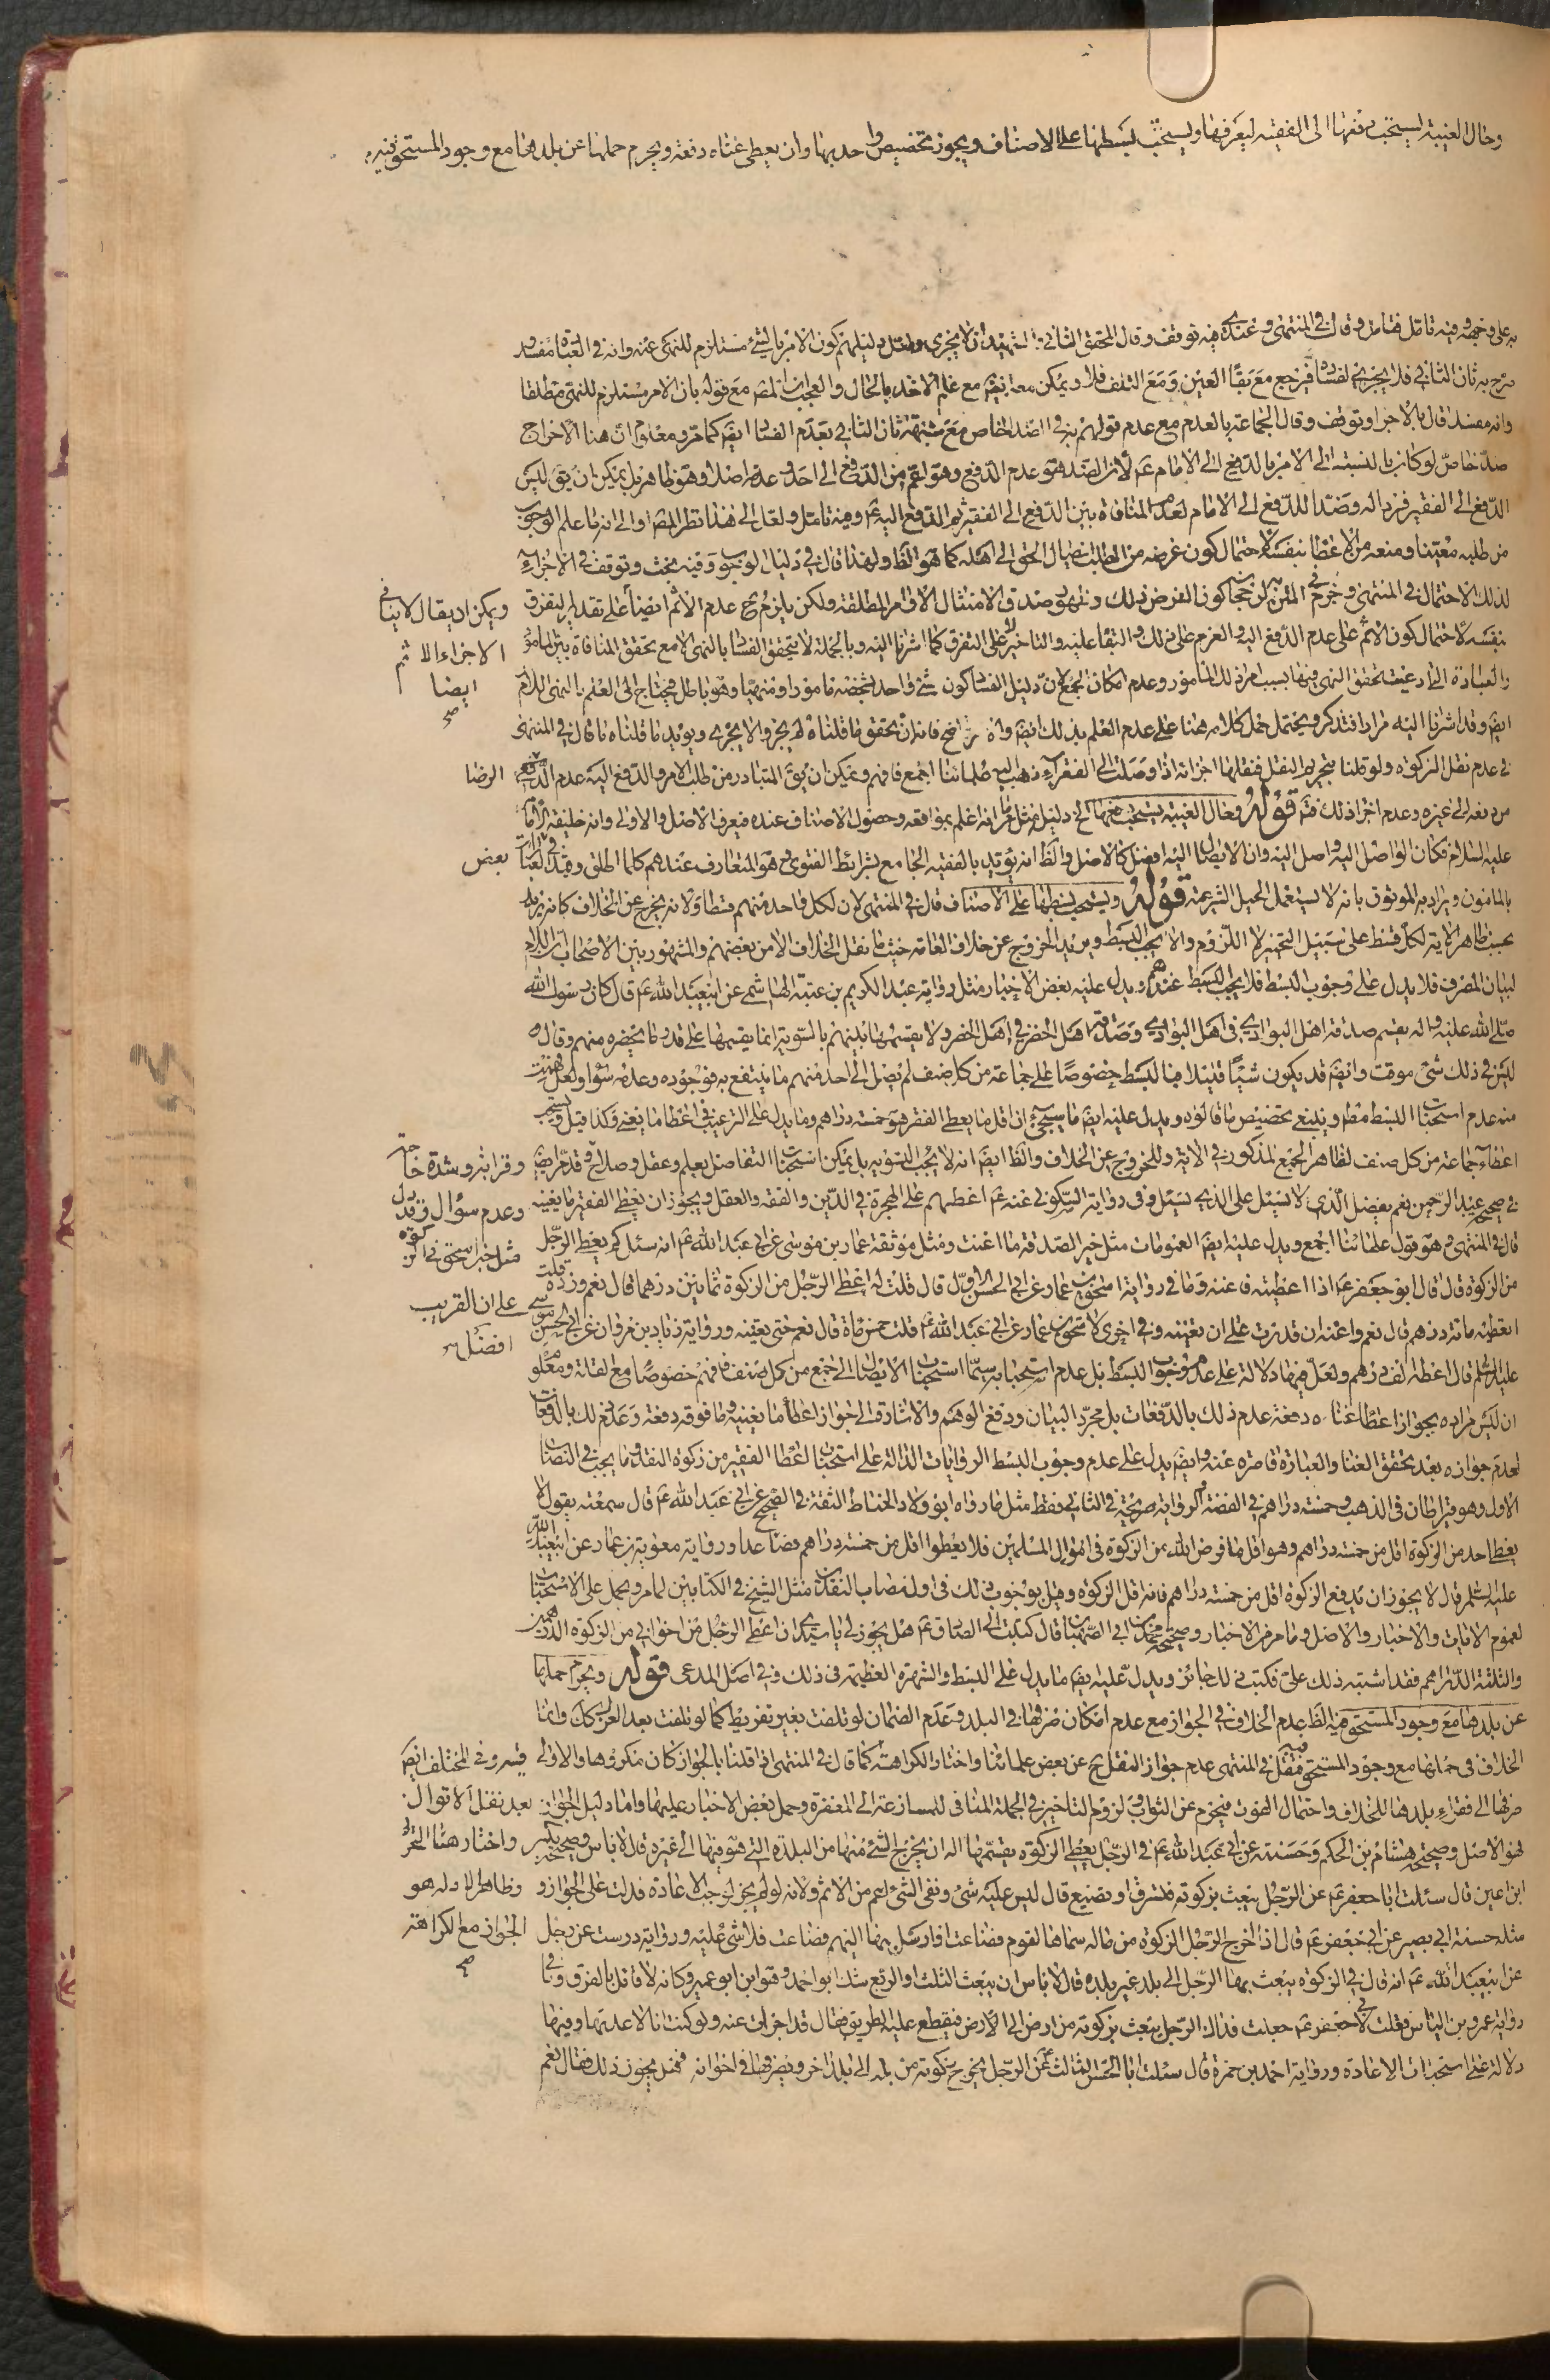 وحال الغيبة يستحب دفعها الى الفقيه ليفرقها ويستحب بسطها على الاصناف ويجوز تخصيص واحد بها وان يعطى غناه دفعة ويحرم حملها عن بلدها مع وجود المستحق فيه
به على وجهه وفيه تامل فتامل وقال في المنتهى وعندي فيه توقف وقال المحقق الثاني الشهيدان لا يجزى ولعل دليلهم كون الامر بالشئ مستلزم للنهى عنه وانه في العبادة مفسد
صرح به ثان الثاني فلا يجزى لفساده فيرجع مع بقاء العين ومع التلف فلا ويمكن معه ايضا مع علم الاخذ بالحال والعجب ان المص مع قوله بان الامر مستلزم للنهى مطلقا
وانه مفسد قال بالاجزا وتوقف وقال الجماعة بالعدم مع عدم قولهم به في الضد الخاص مع شبهة ثان الثاني بعدم الفساد ايض كما مر ومعلوم ان هنا الاخراج
ضد خاص لو كان بالنسبة الى الامر بالدفع الى الامام ع لان الضد هو عدم الدفع وهو اعم من الدفع الى احد وعدمه اصلا وهو ظاهر بل يمكن ان يق ليس
الدفع الى الفقير فردا له وضدا للدفع الى الامام لعدم المنافاة بين الدفع الى الفقير ثم الدفع اليه ع وفيه تامل ولعل الى هذا نظر المص او الى انه ما علم الوجوب
من طلبه معينا ومنعه من الاعطا بنفسه لاحتمال كون غرضه من الطلب ايصال الحق الى اهله كما هو الظ ولهذا قال في دليل الوجوب وفيه بحث وتوقف في الاجزاء
لذلك الاحتمال في المنتهى وجزم في المتن لرجحان كون الغرض ذلك وظهور صدق الامتثال الاوامر المطلقة ولكن يلزم ح عدم الاثم ايضا على تقدير التفرق
ويمكن ان يقال لا ينافي
الاجزاء الاثم
ايضا
صح
بنفسه لاحتمال كون الاثم على عدم الدفع اليه والعزم على ذلك والبقا عليه والتاخير لا على التفرق كما اشرنا اليه وبالجملة لا يتحقق الفساد بالنهى الا مع تحقق المنافاة بين المامور
والعبادة التى ادعيت تحقق النهى فيها بسبب امر ذلك المامور وعدم امكان الجمع لان دليل الفساد كون شئ واحد بشخصه مامورا ومنهيا وهو باطل فيحتاج الى العلم بالنهى اللازم
ايض وقد اشرنا اليه مرارا فتذكر ويحتمل حمل كلامه هنا على عدم العلم بذلك ايض واضح فانه ان يتحقق ما قلناه لم يجز والا يجزى ويؤيد ما قلناه ما قال في المنتهى
في عدم نقل الزكوة ولو قلنا بتحريم النقل فنقلها اجزاته اذا وصلت الى الفقراء ذهب اليه علمائنا اجمع فافهم ويمكن ان يق المتبادر من طلب الامر والدفع اليه عدم
الرضا
من دفعه الى غيره وعدم اجزا ذلك فت قوله وحال الغيبة يستحب دفعها الخ دليل مثل ما مر انه اعلم بمواقعه وحصول الاصناف عنده فيعرف الاصل والاولى وانه خليفة الامام
عليه السلام فكان الواصل اليه واصل اليه وان الايصال اليه افضل كالاصل والظ انه يؤيد بالفقيه الجامع بشرائط الفتوى وهو المتعارف عندهم كلما اطلق وقيد في
بعض
بالمامون ويراد به الموثوق بانه لا يستعمل الحيل الشرعية قوله ويستحب بسطها على الاصناف قال في المنتهى لان لكل واحد منهم قسطا ولانه يخرج عن الخلاف كانه يريد
بحسب ظاهر الاية لكل قسط على سبيل التخيير لا اللزوم والا يجب البسط ويريد الخروج عن خلاف العامة حيث ما نقل الخلاف الا من بعضهم والمشهور بين الاصحاب ان اللام
لبيان المصرف فلا يدل على وجوب البسط فلا يجب البسط عندهم ويدل عليه بعض الاخبار مثل رواية عبد الكريم بن عتبة الهاشمي عن ابيعبد الله ع قال كان رسول الله
صلى الله عليه واله يقسم صدقة اهل البوادى في اهل البوادى وصدقة اهل الحضر في اهل الحضر ولا يقسمها بينهم بالسوية انما يقسمها على قدر ما يحضره منهم وقال
ليس في ذلك شئ موقت وايض قد يكون شيئا قليلا فبا لبسط خصوصا على جماعة من كل صنف لم يصل الى احد منهم ما ينتفع به فوجوده وعدمه سواء ولعل
منه عدم استحباب البسط مطم وينبغي تخصيص ما قالوه ويدل عليه ايض ما سيجئ ان اقل ما يعطى الفقر هو خمسة دراهم وما يدل على الترغيب في اعطا ما يغنى وكذا قيل ويستحب
اعطاء جماعة من كل صنف لظاهر الجمع المذكور في الاية وللخروج عن الخلاف والظ ايض انه لا يجب التسوية بل يمكن استحباب التفاضل بعلم وعقل وصلاح وقد مر ايض
وقرابة وشدة حاجة
في صحيح عبد الرحمن نعم يفضل الذى لا يسئل على الذى يسئل وفي رواية السكوني عنه ع اعطهم على الهجرة في الدين والفقه والعقل ويجوز ان يعطى الفقير ما يغنيه
وعدم سؤال وقد دل
قال في المنتهى وهو قول علمائنا اجمع ويدل عليه ايض العمومات مثل خير الصدقة ما اغنت ومثل موثقة عمار بن موسى عن ابي عبد الله ع انه سئل كم يعطى الرجل
مثل خبر اسحق في الزكوة
من الزكوة قال قال ابو جعفر ع اذا اعطيته فاغنه وما في رواية اسحق بن عمار عن ابي الحسن الاول قال قلت له اعطى الرجل من الزكوة ثمانين درهما قال نعم وزده قلت
على ان القريب
اعطيه مائة درهم قال نعم واغنه ان قدرت على ان تغنيه وفي اخرى لاسحق بن عمار عن ابي عبد الله ع قلت خمس مائة قال نعم حتى يغنيه ورواية زياد بن مروان عن ابي الحسن موسى
افضل
عليه السلم قال اعطه الف درهم ولعل فيها دلالة على عدم وجوب البسط بل عدم استحبابه سيما استحباب الايصال الى جمع من كل صنف فافهم خصوصا مع لفاته ومعلوم
ان ليس مراده بجواز اعطا غناه دفعة عدم ذلك بالدفعات بل مجرد البيان ودفع الوهم والاشارة الى جواز اعطا ما يغنيه وما فوقه دفعة وعدم ذلك بالدفعات
لعدم جوازه بعد تحقق الغنا والعبارة قاصرة عنه وايض يدل على عدم وجوب البسط الروايات الدالة على استحباب اعطا الفقير من زكوة النقد ما يجب في النصاب
الاول وهو قيراطان في الذهب وخمسة دراهم في الفضة والرواية صريحة في الثاني فقط مثل ما رواه ابو ولاد الحناط الثقة في الصحيح عن ابي عبد الله ع قال سمعته يقول لا
يعطى احد من الزكوة اقل من خمسة دراهم وهو اقل ما فرض الله من الزكوة في اموال المسلمين فلا يعطوا اقل من خمسة دراهم فصاعدا ورواية معوية بن عمار عن ابيعبد الله
عليه السلم قال لا يجوز ان يدفع الزكوة اقل من خمسة دراهم فانه اقل الزكوة وقيل بوجوب ذلك في اول نصاب النقدين مثل الشيخ في الكتابين لما مر ويحمل على الاستحباب
لعموم الايات والاخبار والاصل وما مر من الاخبار وصحيحة محمد بن ابي الصهبان قال كتبت الى الصادق ع هل يجوز لى يا سيدى ان اعطى الرجل من اخواني من الزكوة الدرهمين
والثلثة الدراهم فقد اشتبه ذلك على فكتب ذلك جائز ويدل عليه ايض ما يدل على البسط والشهرة العظيمة في ذلك وفي اصل المدعى قوله ويحرم حملها
عن بلدها مع وجود المستحق فيه الظ عدم الخلاف في الجواز مع عدم امكان صرفها في البلد وعدم الضمان لو تلفت بغير تفريط كما لو تلفت بعد العزل كك وانما
الخلاف في حملها مع وجود المستحق فيه فنقل في المنتهى عدم جواز النقل ح عن بعض علمائنا واختار الكراهة كما قال في المنتهى اذا قلنا بالجواز كان مكروها والاولى
فيه وفي المختلف ايض
صرفها الى فقراء بلدها للخلاف واحتمال الفوت فيحرم عن الثواب ولزوم التاخير في الجملة المنافى للمسارعة الى المغفرة وحمل بعض الاخبار عليها واما دليل الجواز
بعد نقل الاقوال
فهو الاصل وصحيحة هشام بن الحكم وحسنته عن ابي عبد الله ع في الرجل يعطى الزكوة يقسمها اله ان يخرج الشئ منها من البلدة التى هو فيها الى غيره قال لا باس وصحيحة بكير
واختار هنا التحريم
ابن اعين قال سئلت ابا جعفر ع عن الرجل يبعث بزكوته فتسرق او تضيع قال ليس عليه شئ ونفى الشئ اعم من الاثم ولانه لو لم يجز لوجب الاعادة فدلت على الجواز و
وظاهر الادلة هو
مثله حسنة ابي بصير عن ابي جعفر ع قال اذا اخرج الرجل الزكوة من ماله سماها لقوم فضاعت او ارسل بها اليهم فضاعت فلا شئ عليه ورواية درست عن رجل
الجواز مع الكراهة
صح
عن ابيعبد الله ع انه قال في الزكوة يبعث بها الرجل الى بلد غير بلده قال لا باس ان يبعث الثلث او الربع شك ابو احمد وهو ابن ابو عمير وكانه لا قائل بالفرق وفي
رواية عمرو بن الياس فقلت لابي جعفر ع جعلت فداك الرجل يبعث بزكوته من ارض الى ارض فيقطع عليه الطريق فقال قد اجزات عنه ولو كنت انا لاعدتها وفيها
دلالة على استحباب الاعادة ورواية احمد بن حمزة قال سئلت ابا الحسن الثالث ع عن الرجل يخرج زكوته من بلد الى بلد اخر ويصرفها في اخوانه فهل يجوز ذلك فقال نعم